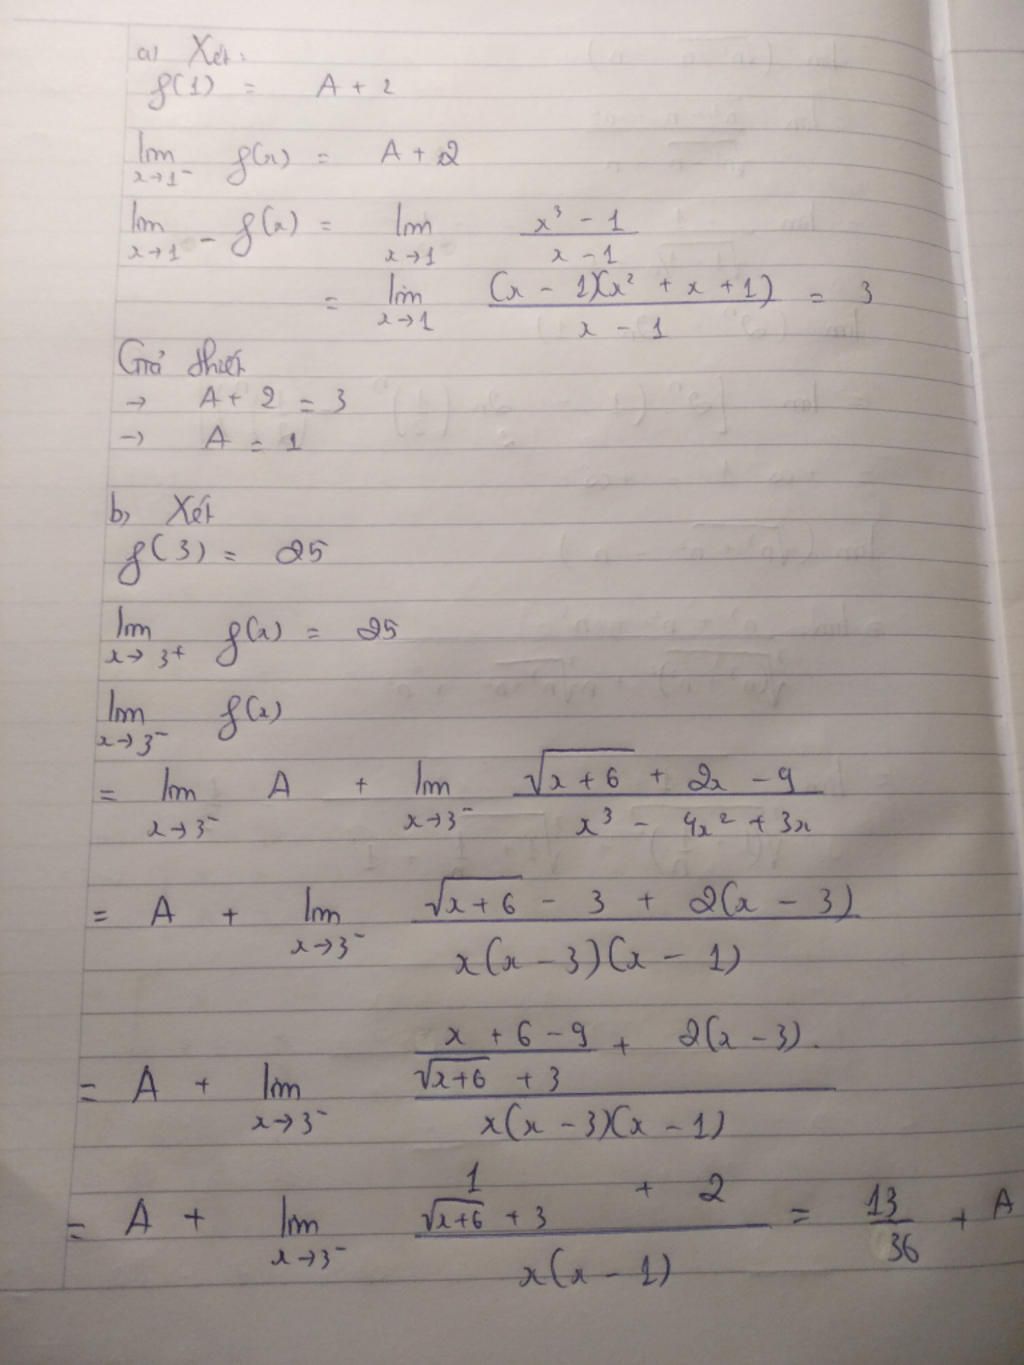 a) Xét:
f(1) = A + 2
lim x→1⁻ f(x) = A + 2
lim x→1 - f(x) = lim x→1 (x³ - 1)/(x - 1)
= lim x→1 ((x - 1)(x² + x + 1))/(x - 1) = 3
Giả thiết
→ A + 2 = 3
→ A = 1
b) Xét
f(3) = 25
lim x→3+ f(x) = 25
lim x→3⁻ f(x)
= lim x→3⁻ A + lim x→3⁻ (√(x+6) + 2x - 9)/(x³ - 4x² + 3x)
= A + lim x→3⁻ (√(x+6) - 3 + 2(x - 3))/(x(x - 3)(x - 1))
= A + lim x→3⁻ ((x + 6 - 9)/(√(x+6) + 3) + 2(x - 3))/(x(x - 3)(x - 1))
= A + lim x→3⁻ (1/(√(x+6) + 3) + 2)/(x(x - 1)) = 13/36 + A